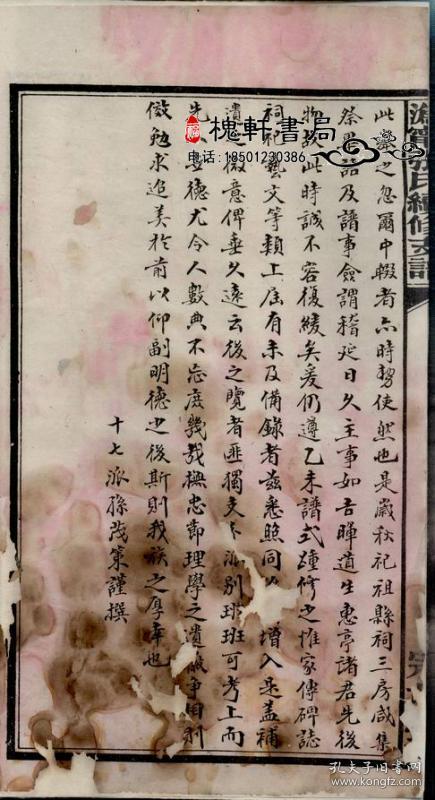 寧張氏續修支譜
此舉之忽爾中輟者亦時勢使然也是歲秋祀祖縣祠三房咸集
祭畢語及譜事僉謂稽延日久主事如吉暉道生惠亭諸君先後
物故此時誠不容復緩矣爰仍遵乙未譜式踵修之惟家傳碑誌
祠祀藝文等類上屆有未及備錄者茲悉照同 增入是蓋補
遺之微意俾垂久遠云後之覽者匪獨支 派別班班可考上而
先 德尤令人數典不忘庶幾哉撫忠節理學之遺 爭自刻
儆勉求追美於前以仰副明德之後斯則我族之厚幸也
十七派孫茂策謹撰
槐軒書局
电话:18501230386
孔夫子旧书网